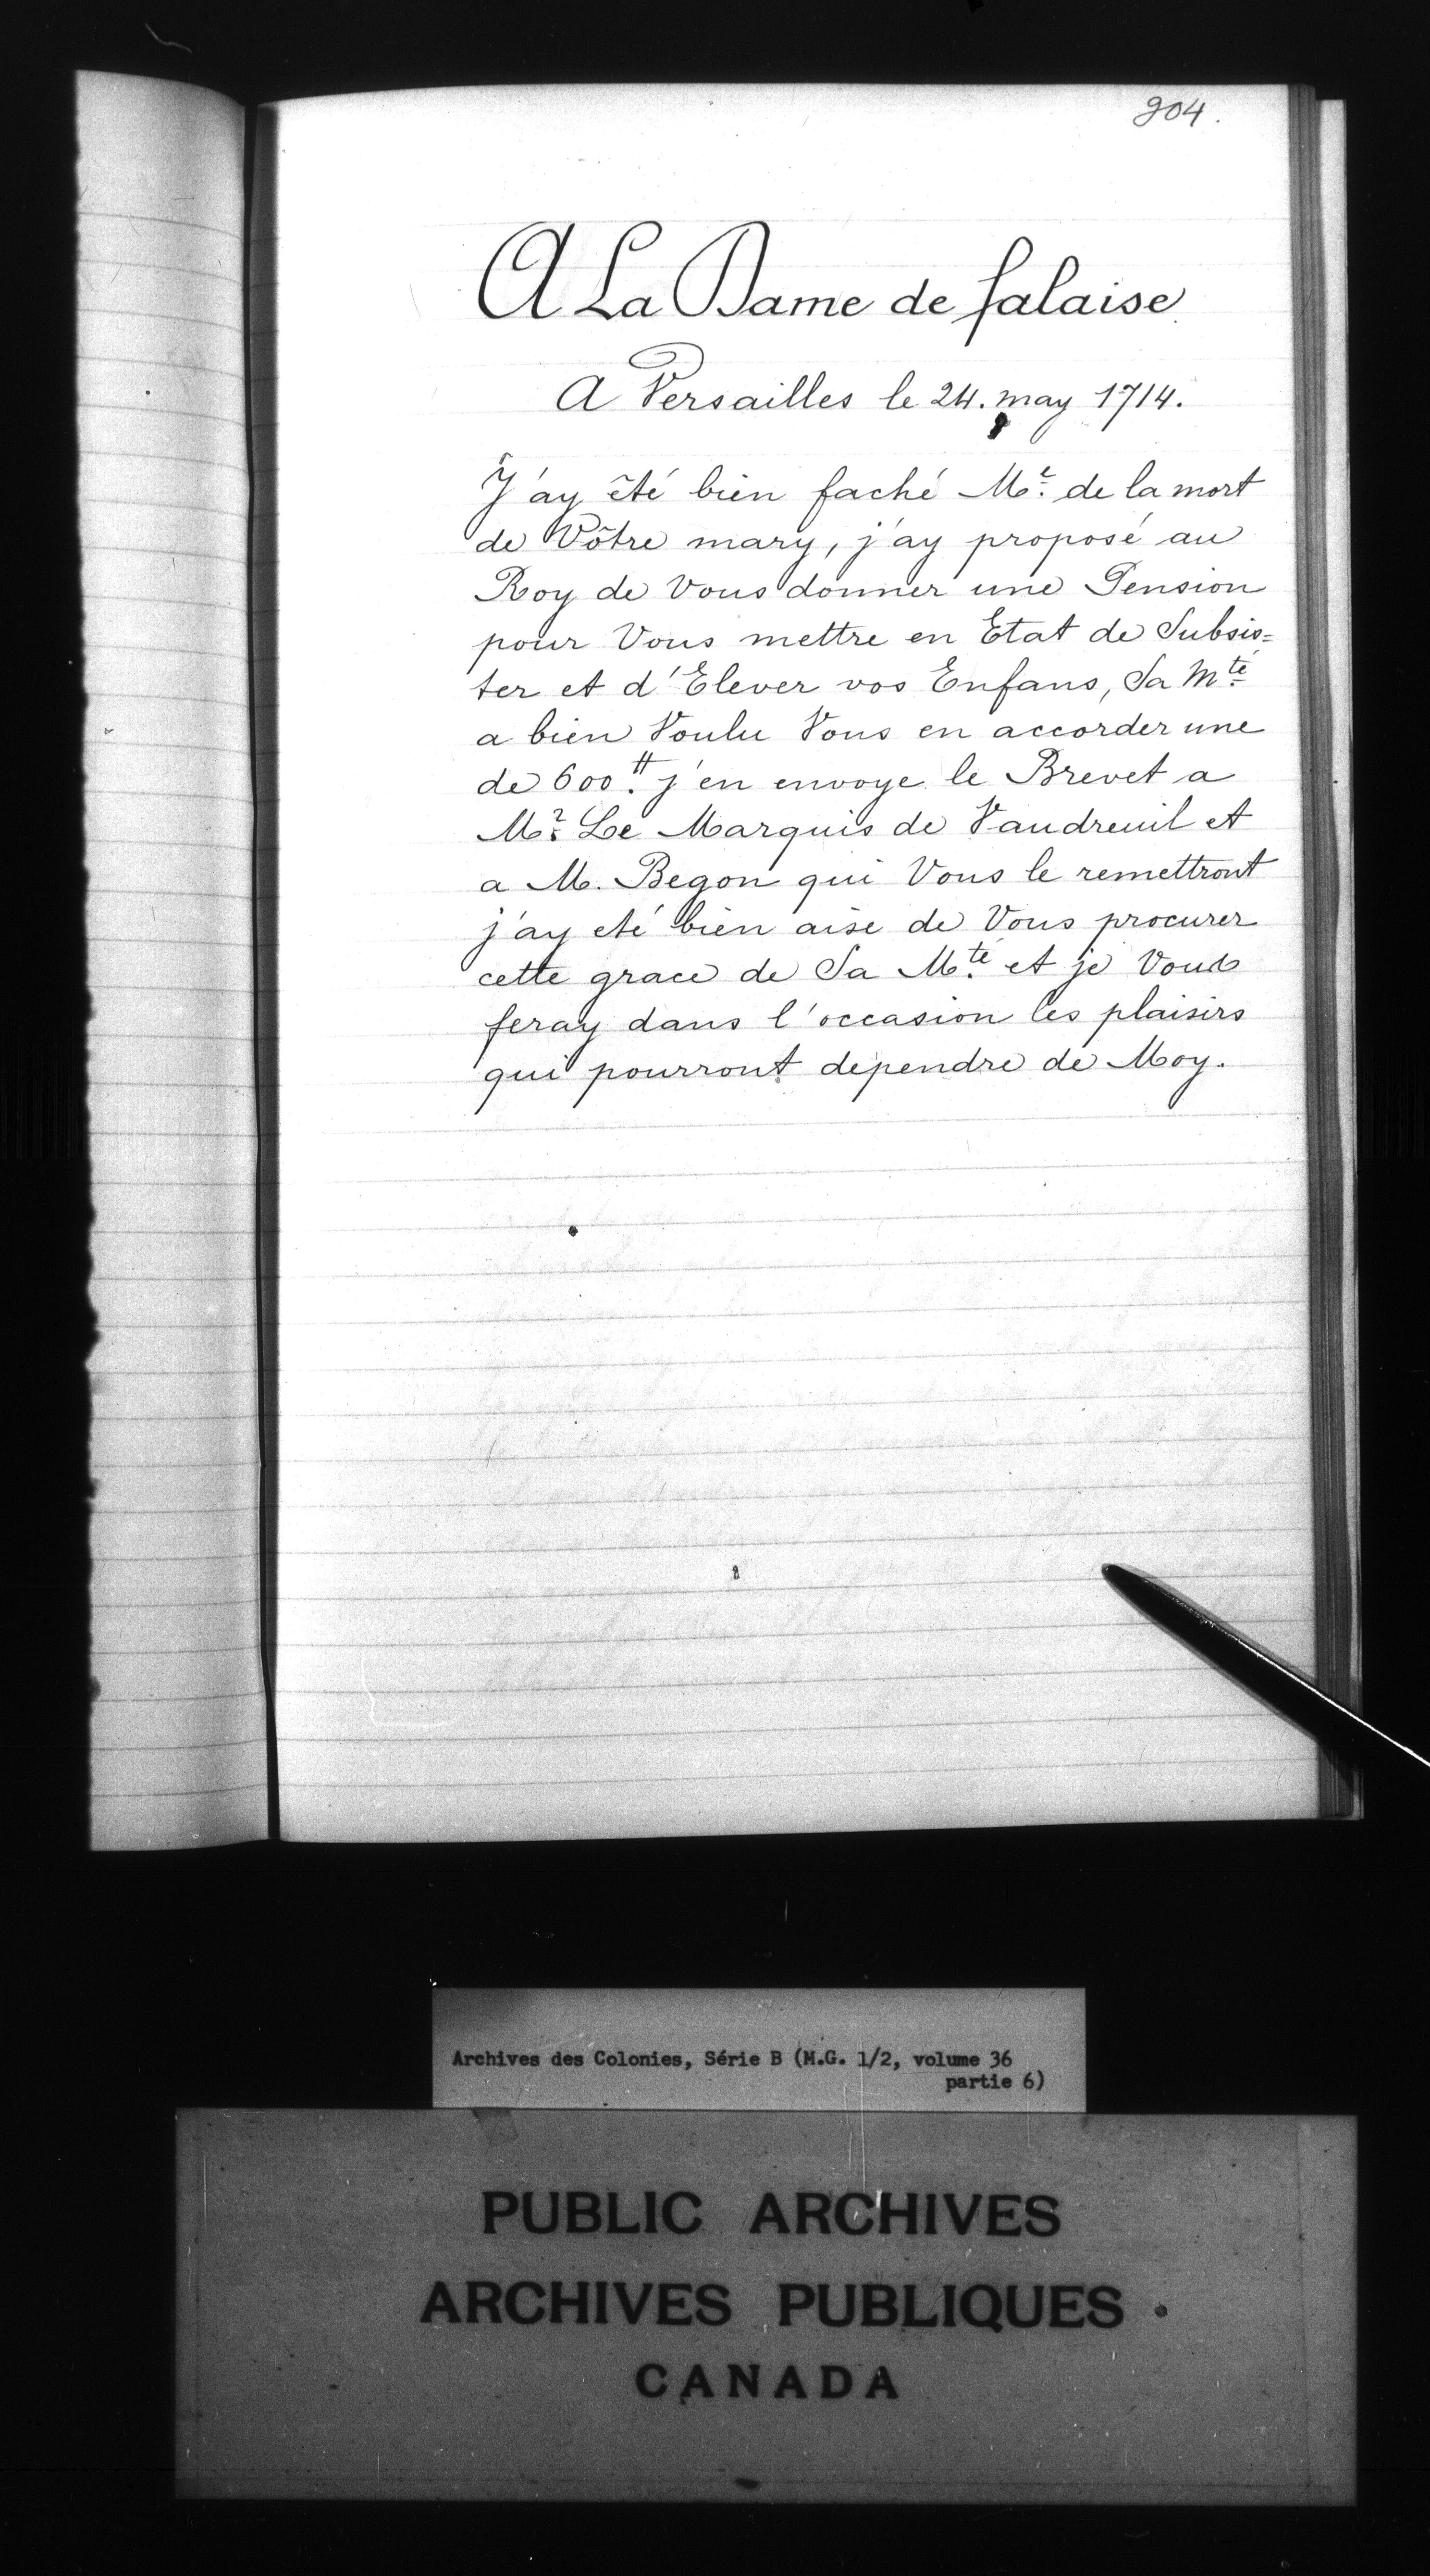 904.
A La Dame de falaise
A Versailles le 24. may 1714.
J'ay été bien faché Me. de la mort
de Vôtre mary, j'ay proposé au
Roy de Vous donner une Pension
pour Vous mettre en Etat de Subsis=
ter et d'Elever vos Enfans, Sa Mté
a bien Voulu Vous en accorder une
de 600.tt j'en envoye le Brevet a
Mr. Le Marquis de Vaudreuil et
a M. Begon qui Vous le remettront
j'ay eté bien aise de Vous procurer
cette grace de Sa Mté et je Vous
feray dans l'occasion les plaisirs
qui pourront dependre de Moy.
Archives des Colonies, Série B (M.G. 1/2, volume 36
partie 6)
PUBLIC ARCHIVES
ARCHIVES PUBLIQUES
CANADA